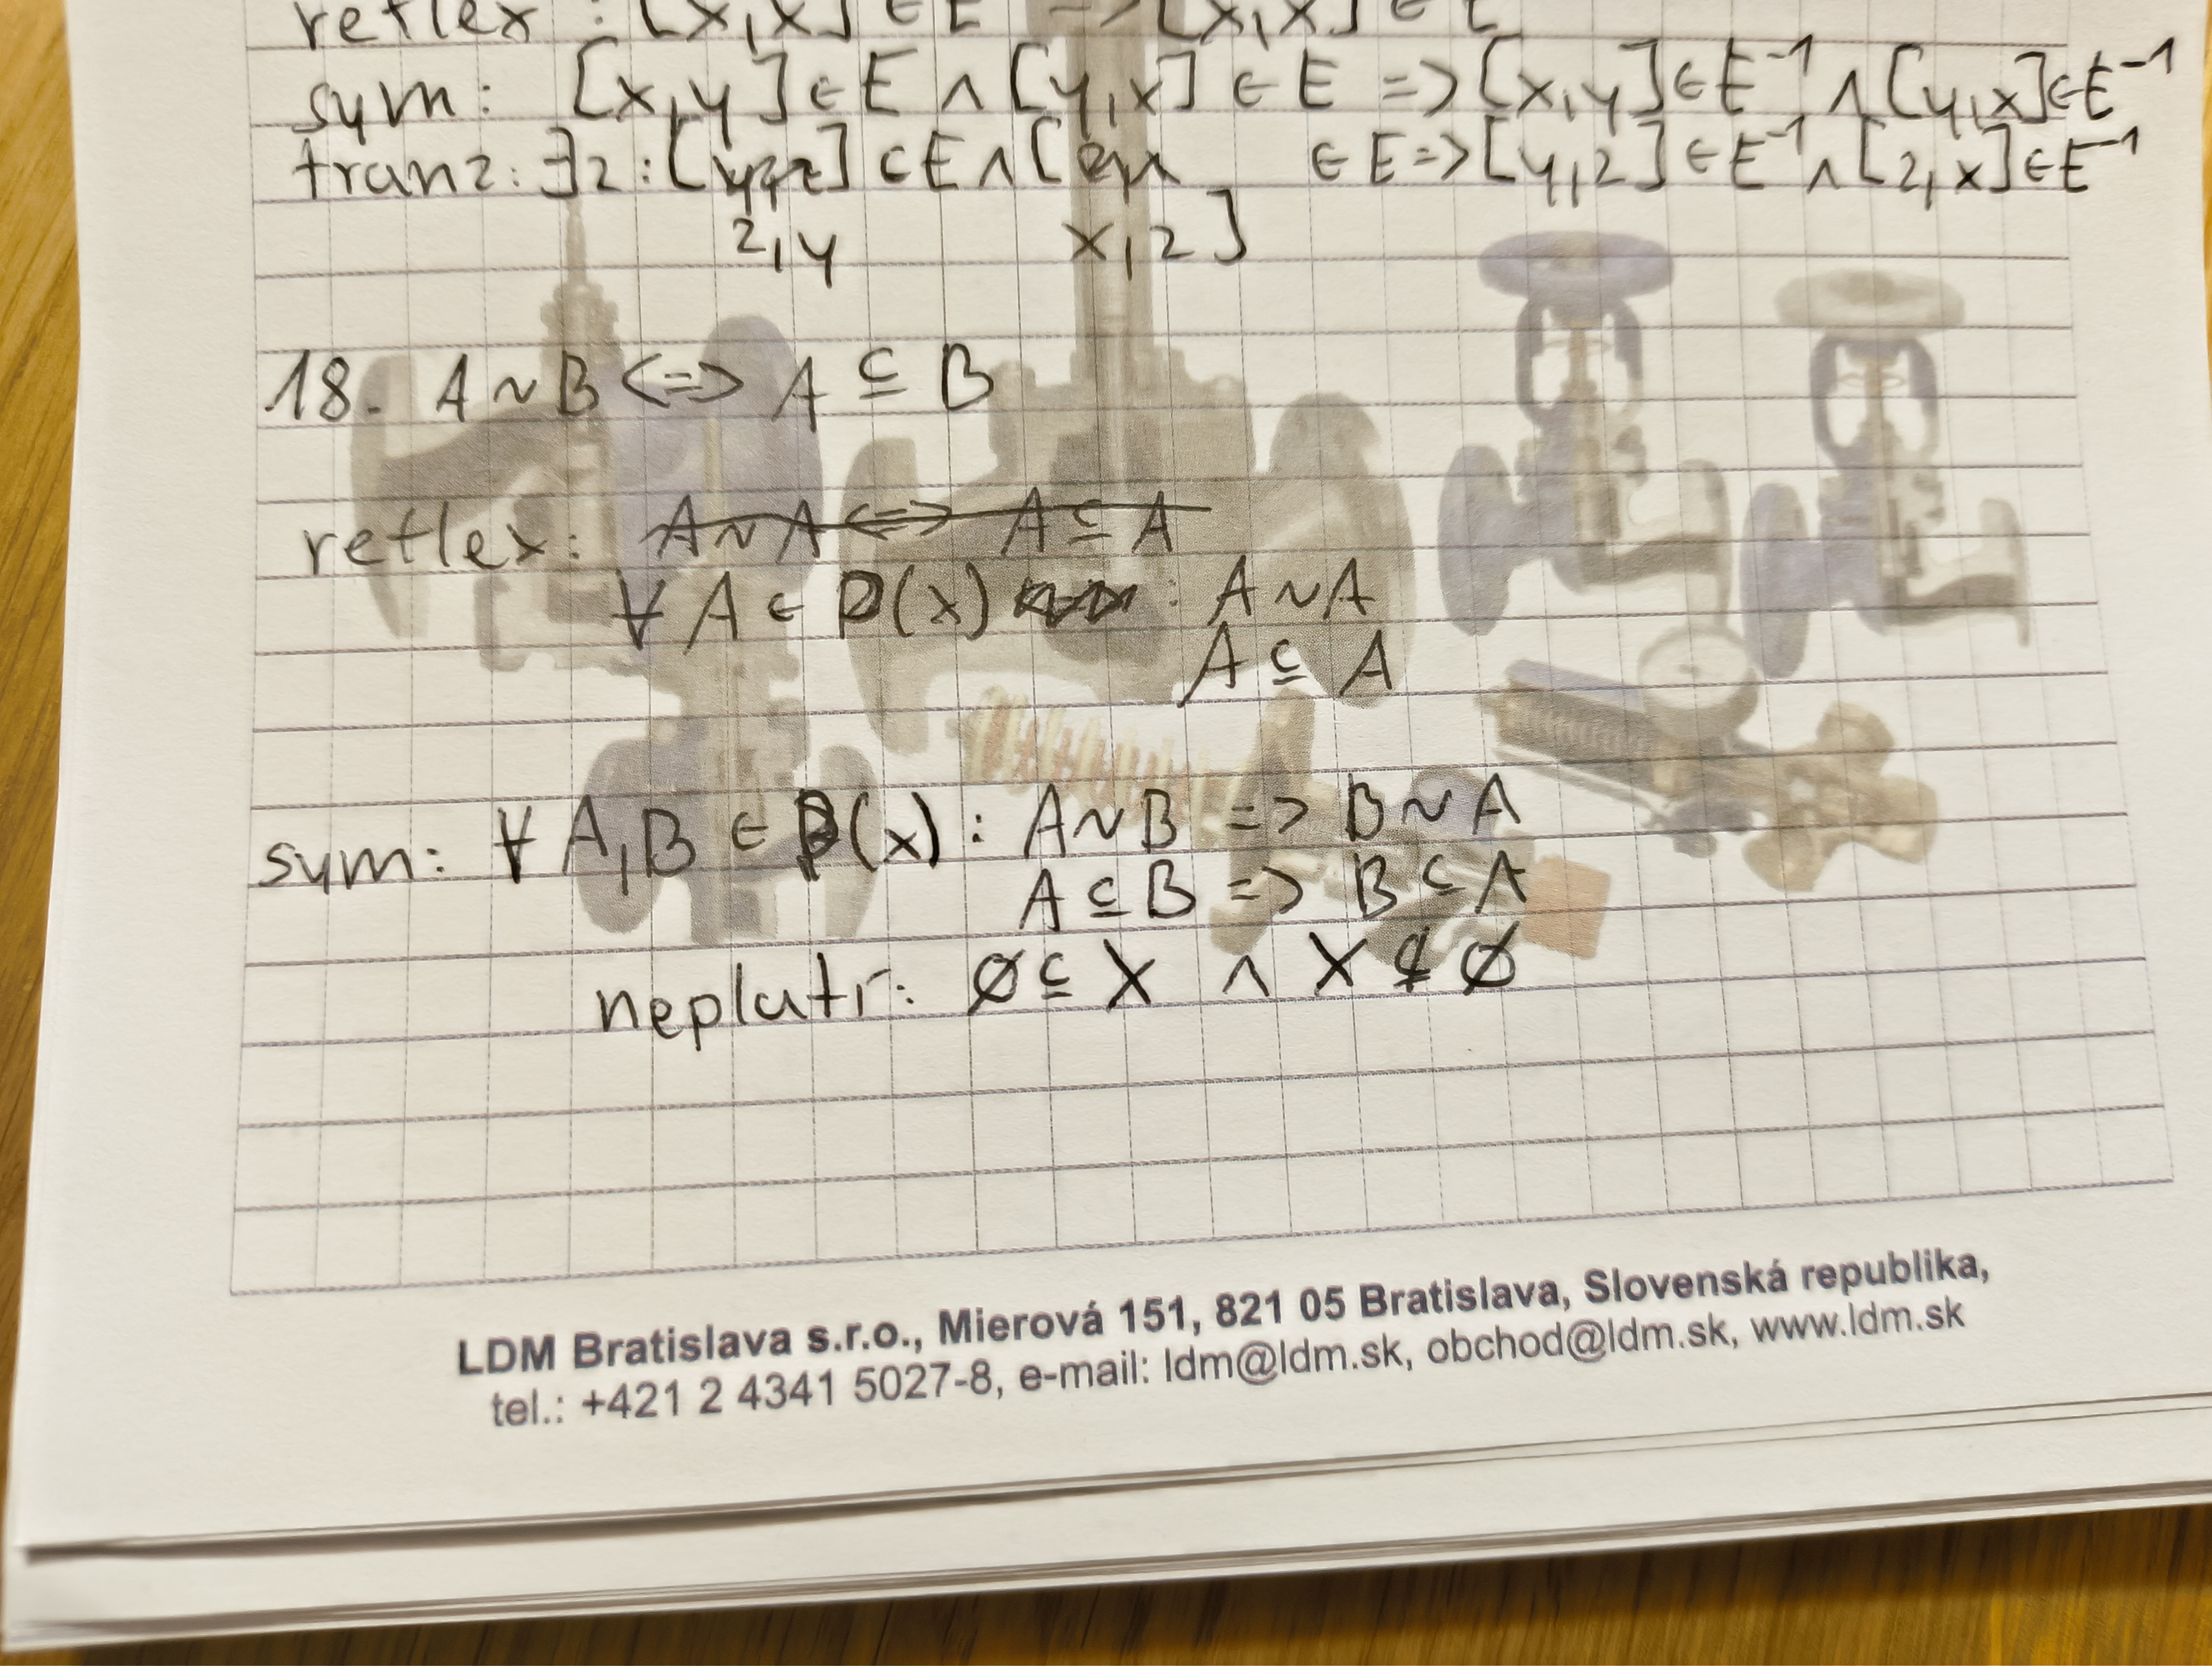 reflex: [x,x] ∈ E => [x,x] ∈ E
sym: [x,y] ∈ E ∧ [y,x] ∈ E => [x,y] ∈ E⁻¹ ∧ [y,x] ∈ E⁻¹
tranz: ∃z: [ ] ∈ E ∧ [ ∈ E => [y,z] ∈ E⁻¹ ∧ [z,x] ∈ E⁻¹
z,y x,z]
18. A ~ B <=> A ⊆ B
reflex: A ~ A <=> A ⊆ A
∀ A ∈ P(x) : A ~ A
A ⊆ A
sym: ∀ A,B ∈ P(x): A ~ B => B ~ A
A ⊆ B => B ⊆ A
neplatí: ∅ ⊆ X ∧ X ⊈ ∅
LDM Bratislava s.r.o., Mierová 151, 821 05 Bratislava, Slovenská republika,
tel.: +421 2 4341 5027-8, e-mail: ldm@ldm.sk, obchod@ldm.sk, www.ldm.sk